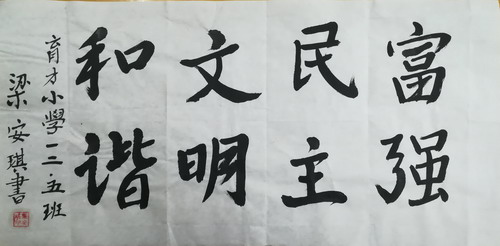 富强
民主
文明
和谐
育才小學一二·五班
梁安琪書